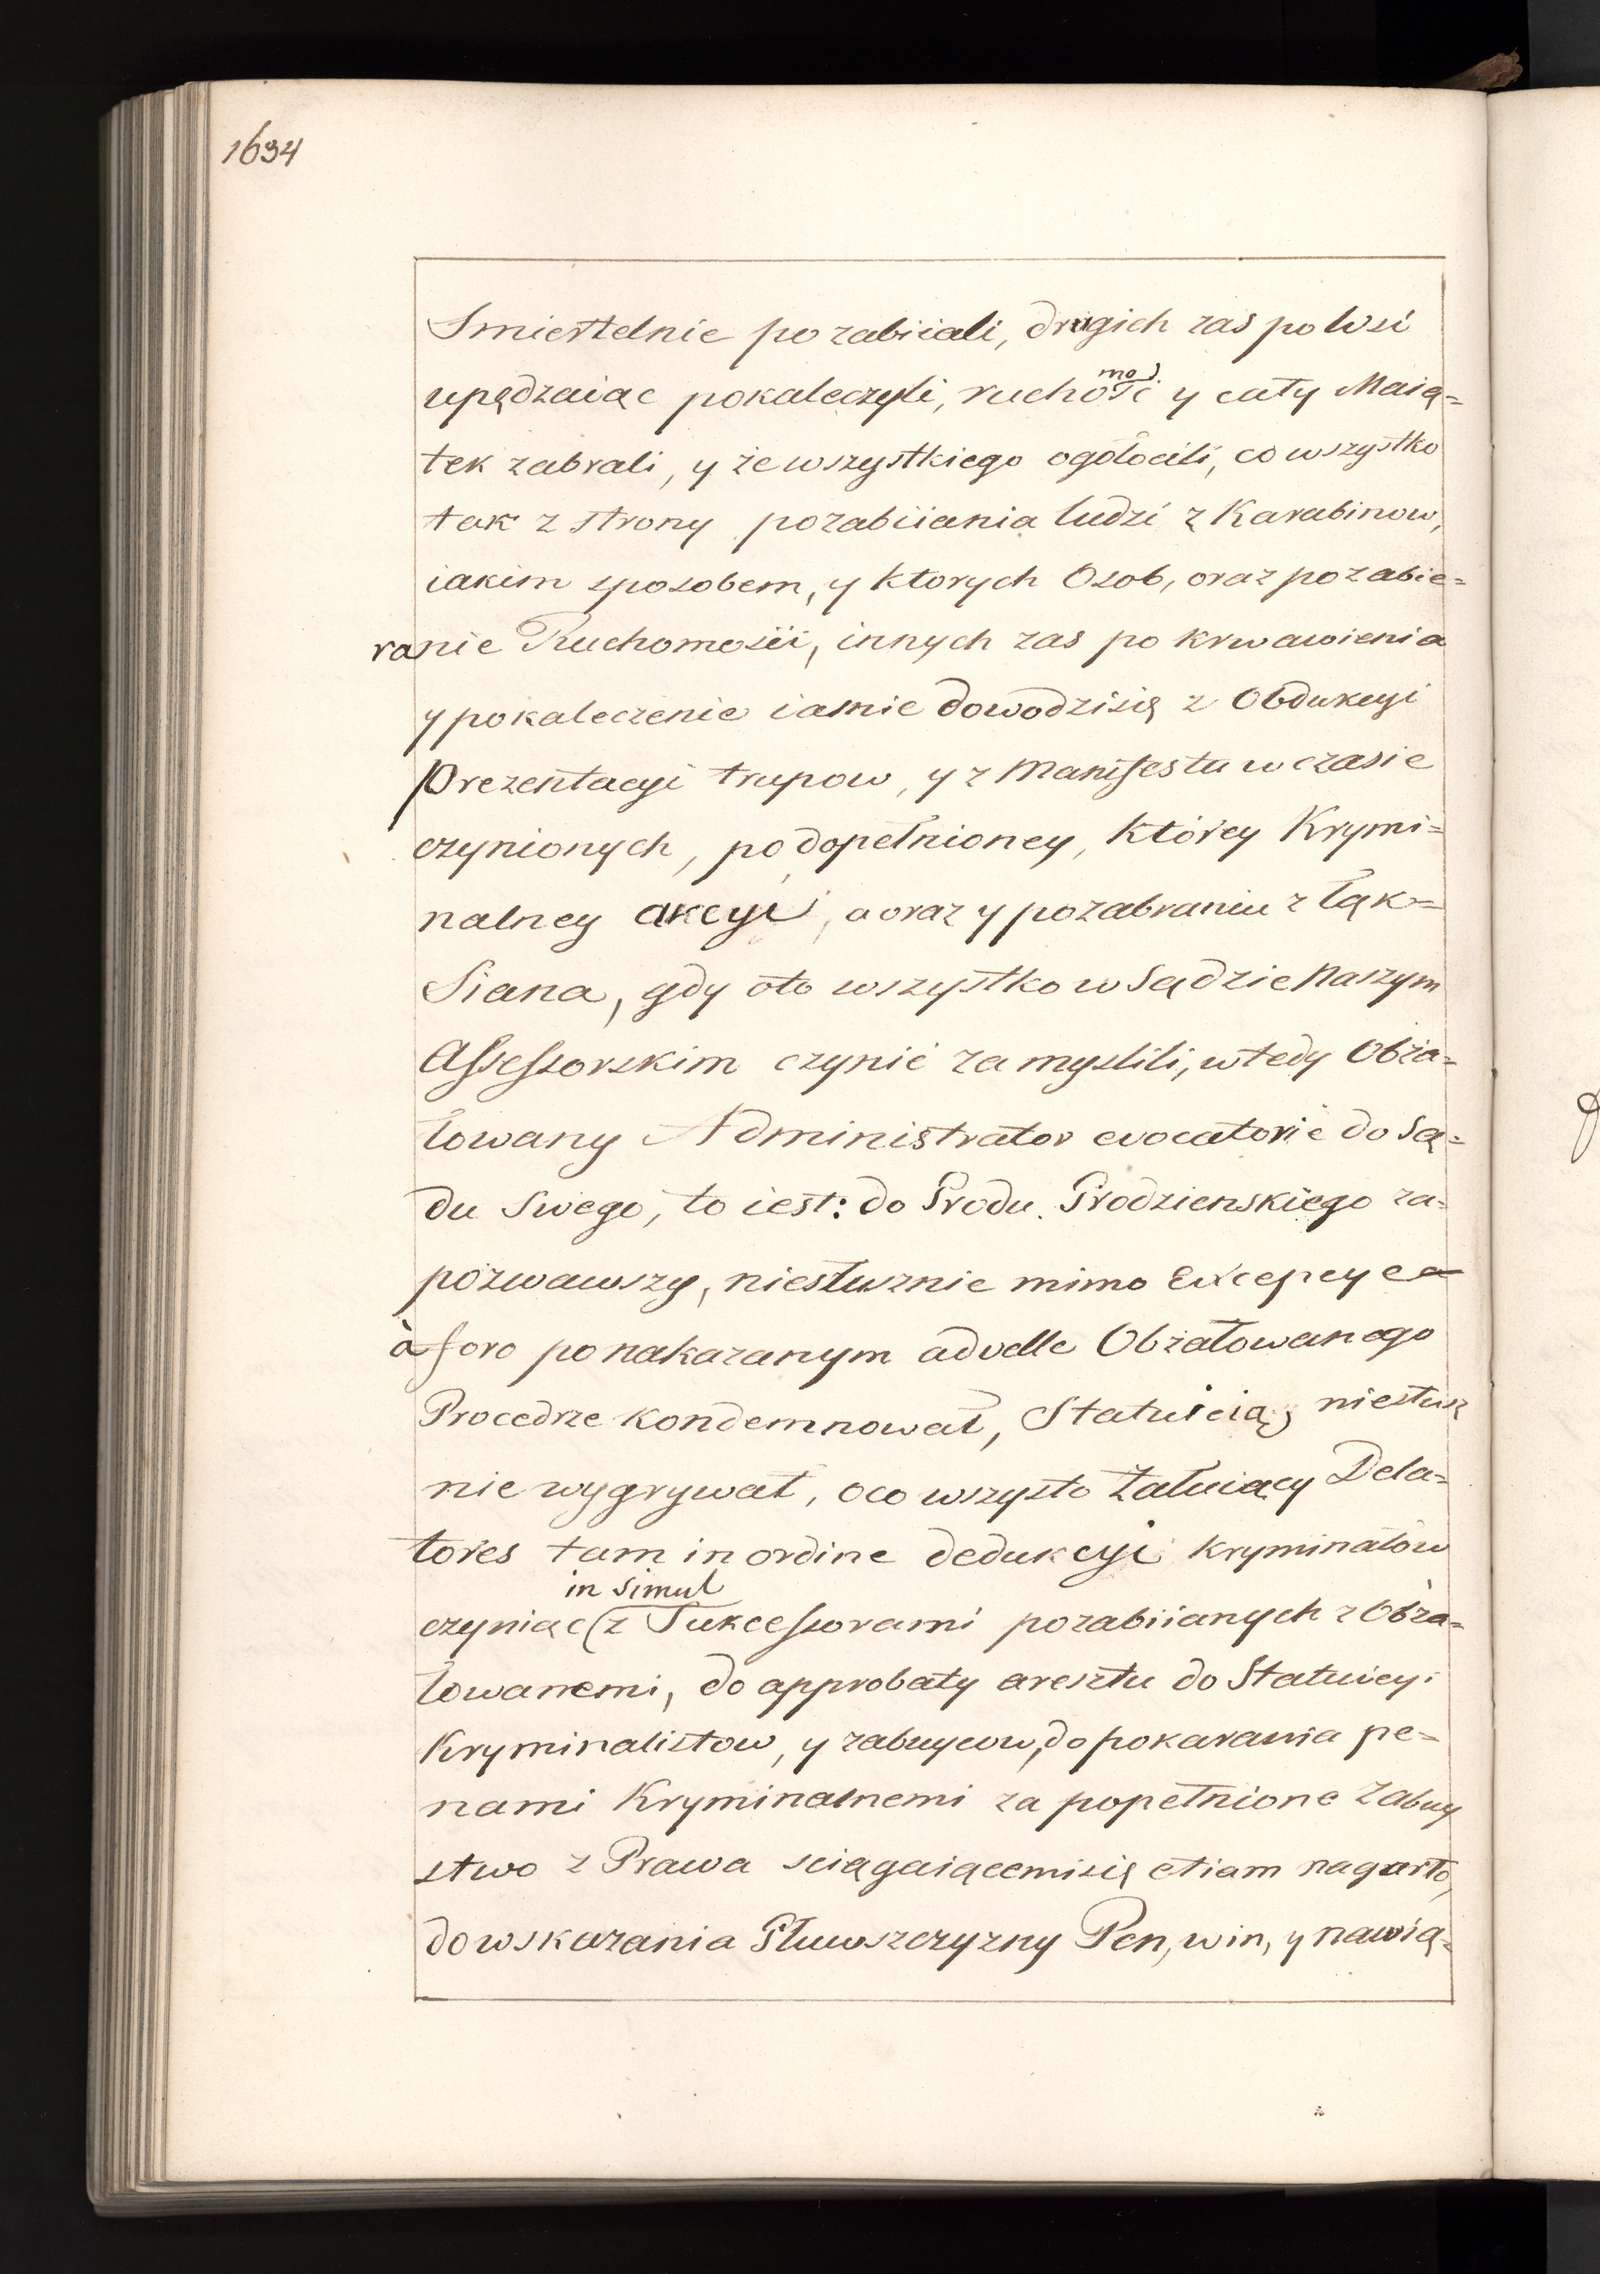 1634
Smiertelnie po zabiiali, drugich zas po Wsi
upędzaiąc pokaleczyli, ruchomość y cały Maią=
tek zabrali, y ze wszystkiego ogołocili, co wszystko
tak z strony pozabiiania ludzi z Karabinow,
iakim sposobem, y ktorych Osob, oraz pozabie=
ranie Ruchomosii, innych zas po krwawienia
y pokaleczenie iasnie dowodzisię z Obdukcyi
Prezentacyi trupow, y z Manifestu w czasie
czynionych, po dopełnioney, którey Krymi=
nalney akcyi, a oraz y pozabraniu z łąk=
Siana, gdy oto wszystko w Sądzie Naszym
Assessorskim czynić za myslili, wtedy Obża=
łowany Administrator evocatorie do Są=
du Swego, to iest: do Grodu Grodzienskiego za=
pozwawszy, niesłusznie mimo Excepcye
à foro po nakazanym advelle Obżałowanego
Procedrze kondemnował, Statuicią, niesłusz
nie wygrywał, oco wszyzto Żałuiący Dela=
tores tam in ordine dedukcyi kryminałów
czyniąc (in simul z Sukcessorami pozabiianych z Obża=
łowanemi, do approbaty aresztu do Statuicyi
Kryminalistow, y zabuycow, do pokarania pe=
nami Kryminalnemi za popełnione Zabuy
stwo z Prawa sciągaiącemisię etiam na garło,
do wskazania Głuwszczyzny Pen, win, y nawią=